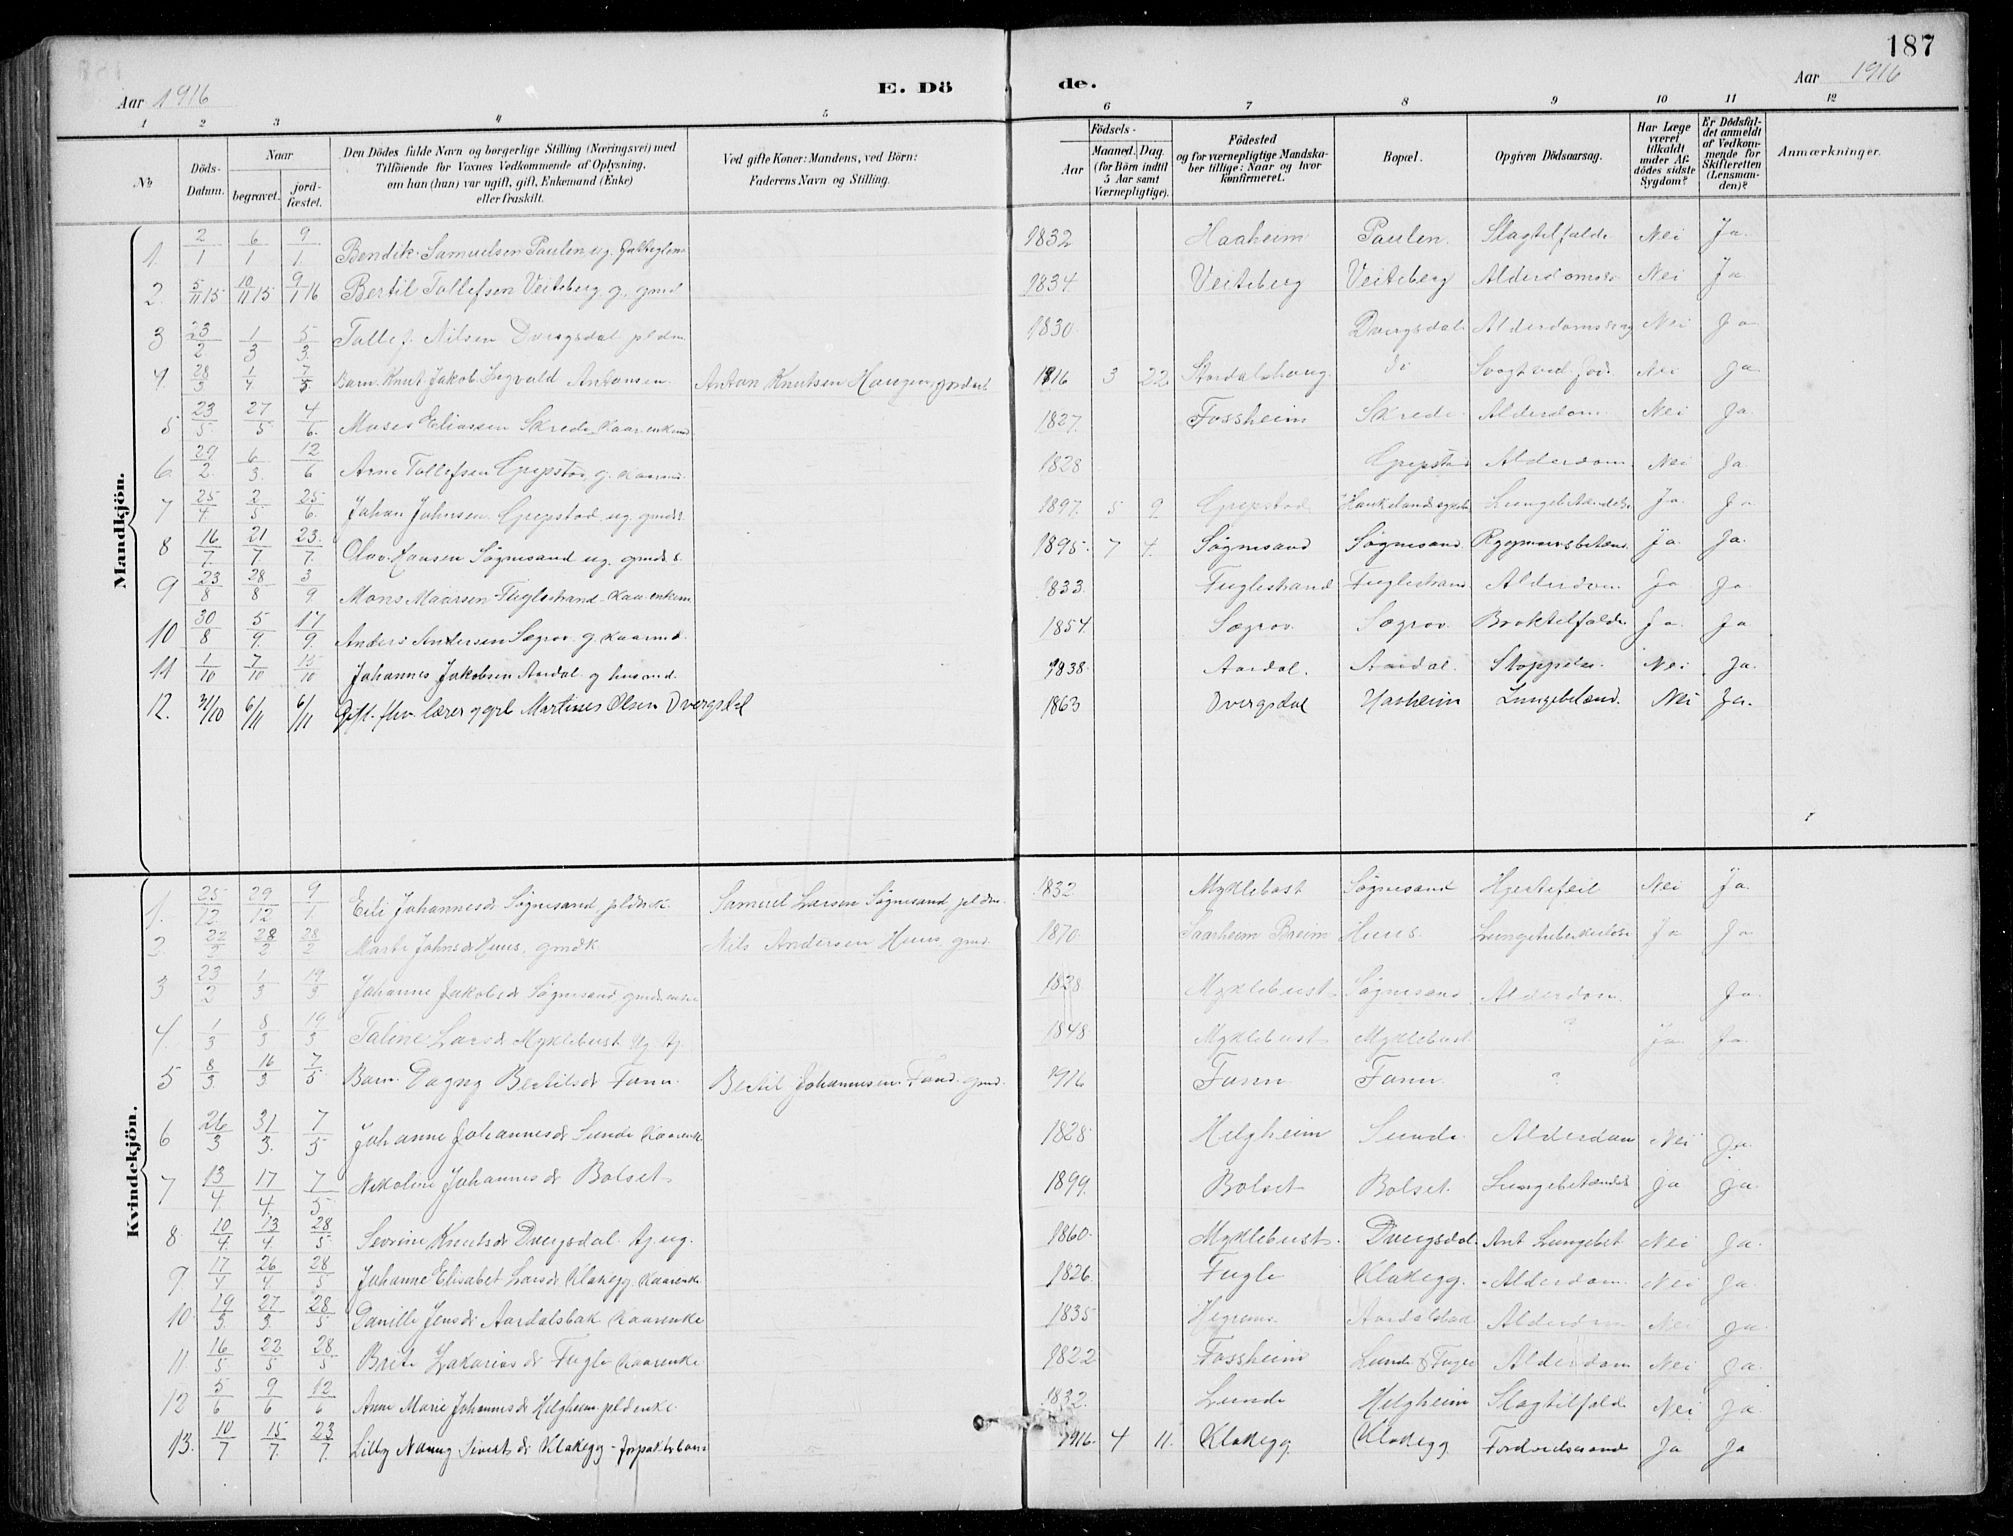 187
Aar 1916
E. Dö
de.
Aar 1916
1 2 3 4 5 6 7 8 9 10 11 12
№
Döds-Datum.
Naar
begravet.
jord-fæstet.
Den Dödes fulde Navn og borgerlige Stilling (Næringsvei) med
Tilföiende for Voxnes Vedkommende af Oplysning,
om han (hun) var ugift, gift, Enkemand (Enke)
eller fraskilt.
Ved gifte Koner: Mandens, ved Börn:
Faderens Navn og Stilling.
Födsels-
Aar
Maaned. Dag
(for Börn indtil
5 Aar samt
Værnepligtige).
Födested
og for værnepligtige Mandska-
ber tillige: Naar og hvor
konfirmeret.
Bopæl.
Opgiven Dödsaarsag.
Har Læge
været
tilkaldt
under Af-
dödes sidste
Sygdom?
Er Dödsfal-
det anmeldt
af Vedkom-
mende for
Skifteretten
(Lensman-
den)?
Anmærkninger.
Mandkjön.
1. 2/1 6/1 9/1 Bendik Samuelsen Paulen ug. 1832 Haaheim Paulen. Slagtilfælde Nei Ja.
2. 5/11 15 10/11 15 9/1 16 Bertil Tollefsen Veiteberg g. gmd 1834 Veiteberg Veiteberg Nei Ja
3 23/2 1/3 5/3. Tollef Nilsen Dvergsdal pldm. 1830. Dvergsdal Alderdomssvag Nei Ja
4. 28/3 1/4 7/5. Barn Knut Jakob Ingvald Antonsen. Anton Knutsen Haugen, 1916 3 22 Stardalshaug do Svagt ved Nei Ja.
5 23/5. 27/5 4/6. Moses Eliassen Skrede kaarenkem 1827. Fossheim Skrede Alderdom. Nei Ja.
6. 29/2. 6/3. 12/6 Arne Tollefsen Grepstad g. kaarmd. 1828 Grepstad Alderdom Nei Ja.
7 25/4. 2/5 25/6. Johan Johnsen Grepstad ug. gmds. 1897. 5 9 Grepstad Haukelandssykeh Lungebetændelse Ja. Ja
8 16/7. 21/7. 23./7. Olav Hansen Søgnesand ug. gmds s. 1895. 7 4. Søgnesand Søgnesand Rygmarvsbetænd. Ja. Ja.
9 23/8 28/8 3/9 Mons Maarsen Fuglestrand kaarenkem 1833. Fuglestrand Fuglestrand Alderdom Ja Ja
10 30/8 5/9. 17/9. Anders Andersen Sægrov. g. kaarmd. 1854. Sægrov Sægrov. Broktilfælde Ja. Ja
11 1/10 7/10 15/10 Johannes Jakobsen Aardal g husmd. 1838. Aardal. Aardal. Nei Ja.
12. 31/10 6/11 6/11 Gift. fhv. lærer og gbr. Martines Olsen Dvergsdal 1863 Dvergsdal Haaheim Lungebetænd. Nei Ja.
Kvindekjön.
1. 25/12. 29/12 9/1 Eli Johannesdr Søgnesand, pldmk. Samuel Larsen Søgnesand pldm. 1832 Myklebost Søgnesand Hjertefeil Nei Ja.
2 22/2 28/2 28/2 Marte Johnsdr Huus, gmdk Nils Andersen Huus, gmd. 1870. Breim Huus. Lungetuberkulose Ja Ja
3 23/2 1/3 19/3 Johanne Jakobsdr Søgnesand gmdsenke 1838 Myklebust Søgnesand Alderdom. Ja.
4. 1/3 8/3 19/3 Taline Larsdr Myklebust ug. tj. 1848 Myklebust Myklebust ? Ja Ja.
5 8/3. 16/3 7/5 Barn Dagny Bertilsdr Fonn. Bertil Johannesen Fond gmd. 1916 Fonn. Fonn. ?
6 26/3 31/3. 7/5 Johanne Johannesdr Sunde kaarenke 1828 Helgheim Sunde. Alderdom Nei Ja.
7 13/4. 17/4. 7/5 Nikoline Johannesdr Bolset 1899. Bolset Bolset. Lungebetændels Ja Ja.
8. 10/4. 13/4 28/5. Sevrine Knutsdr Dvergsdal. tj. ug. 1860. Myklebust. Dvergsdal. Ant Lungebet Nei Ja.
9 17/4 26/4. 28/5 Johanne Elisabet Larsdr Klakegg kaarenke 1826. Fugle Klakegg. Alderdom. Nei Ja.
10. 19/3. 27/3 28/5 Danille Jensdr Aardalsbak kaarenke 1835 Aardalsbak Alderdom Nei Ja.
11. 16/5 22/5 28/5 Brite Zakariasdr Fugle kaarenke 1822 Fossheim Alderdom Nei Ja.
12 5/6 9/6 12/6 Anne Marie Johannesdr Helgheim pldenke. 1832. Lunde Helgheim Slagtilfælde Nei Ja.
13. 10/7 15/7. 23/7. Lilly Nanny Sivertsdr Klakegg 1916. 4 11. Klakegg Klakegg Ja Ja